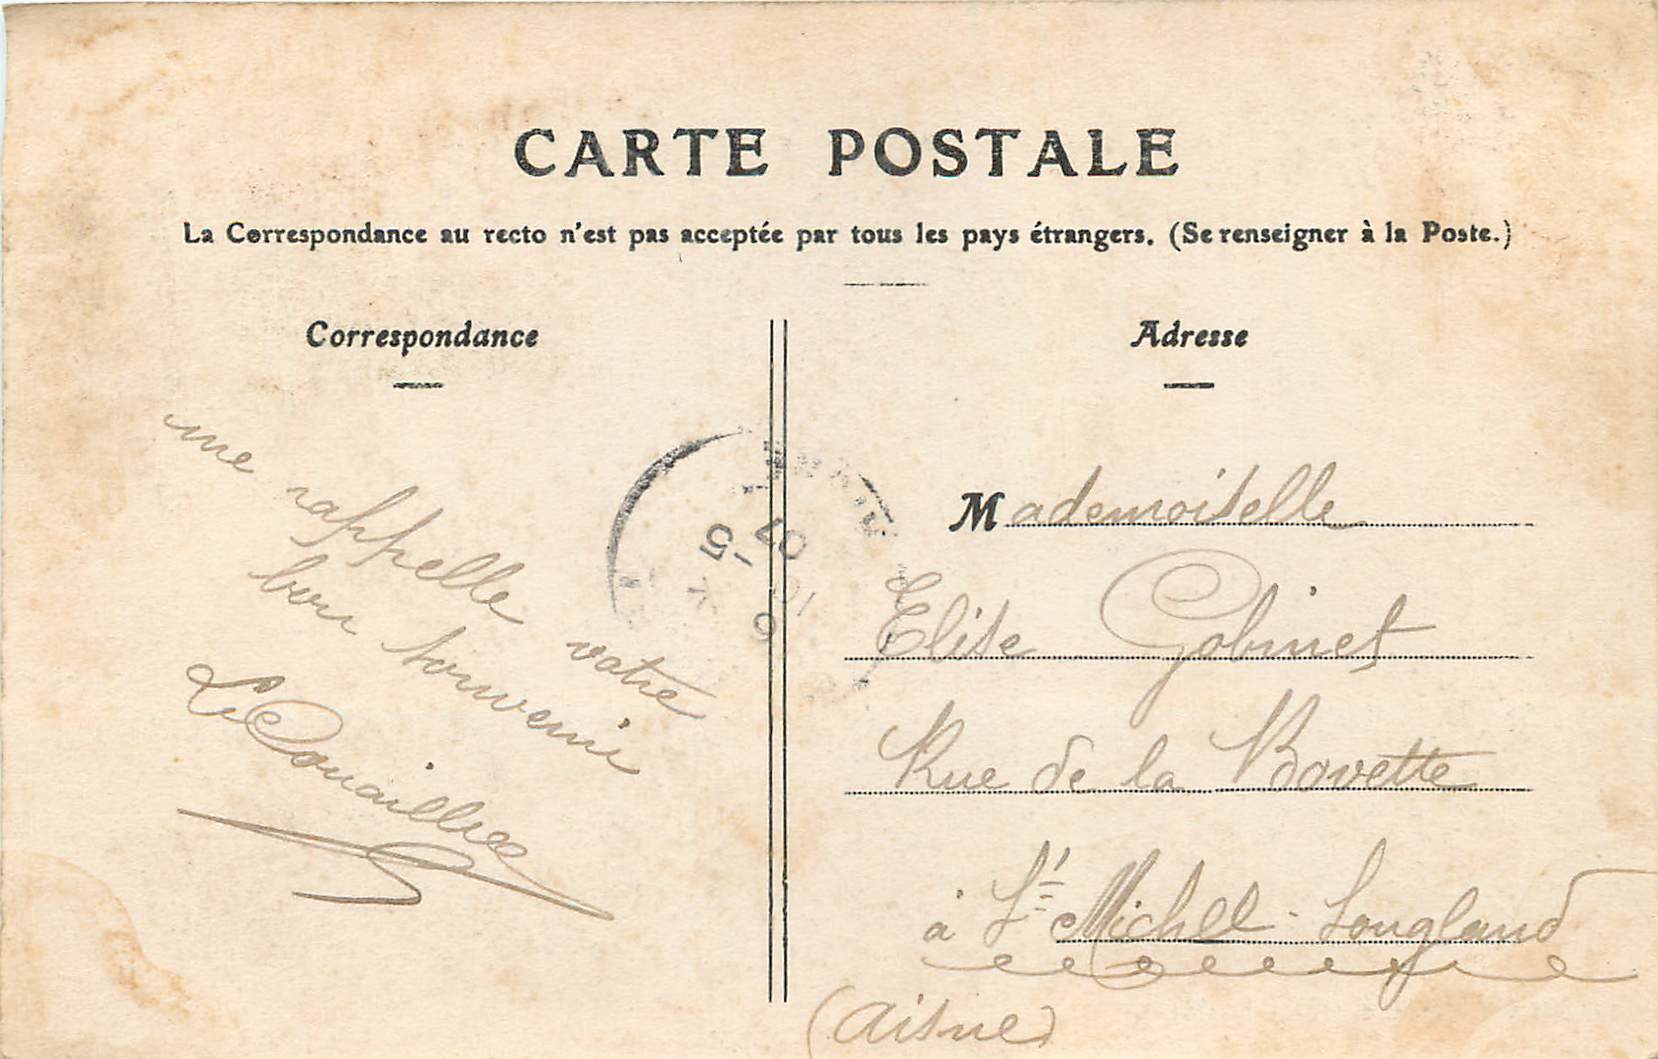 CARTE POSTALE
La Correspondance au recto n'est pas acceptée par tous les pays étrangers. (Se renseigner à la Poste.)
Correspondance
me rappelle votre
bon souvenir
Adresse
Mademoiselle
Elise Gobinet
Rue de la Bovette
à St Michel-Sougland
(Aisne)